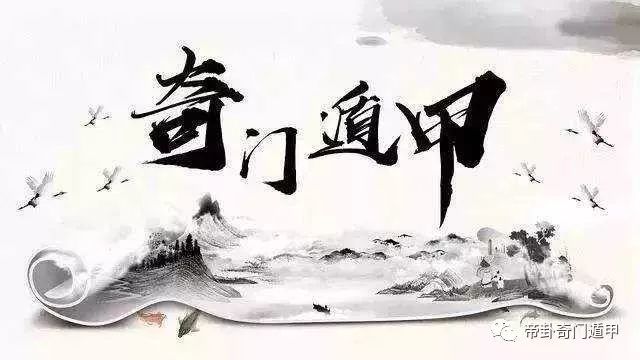 奇门遁甲
帝卦奇门遁甲